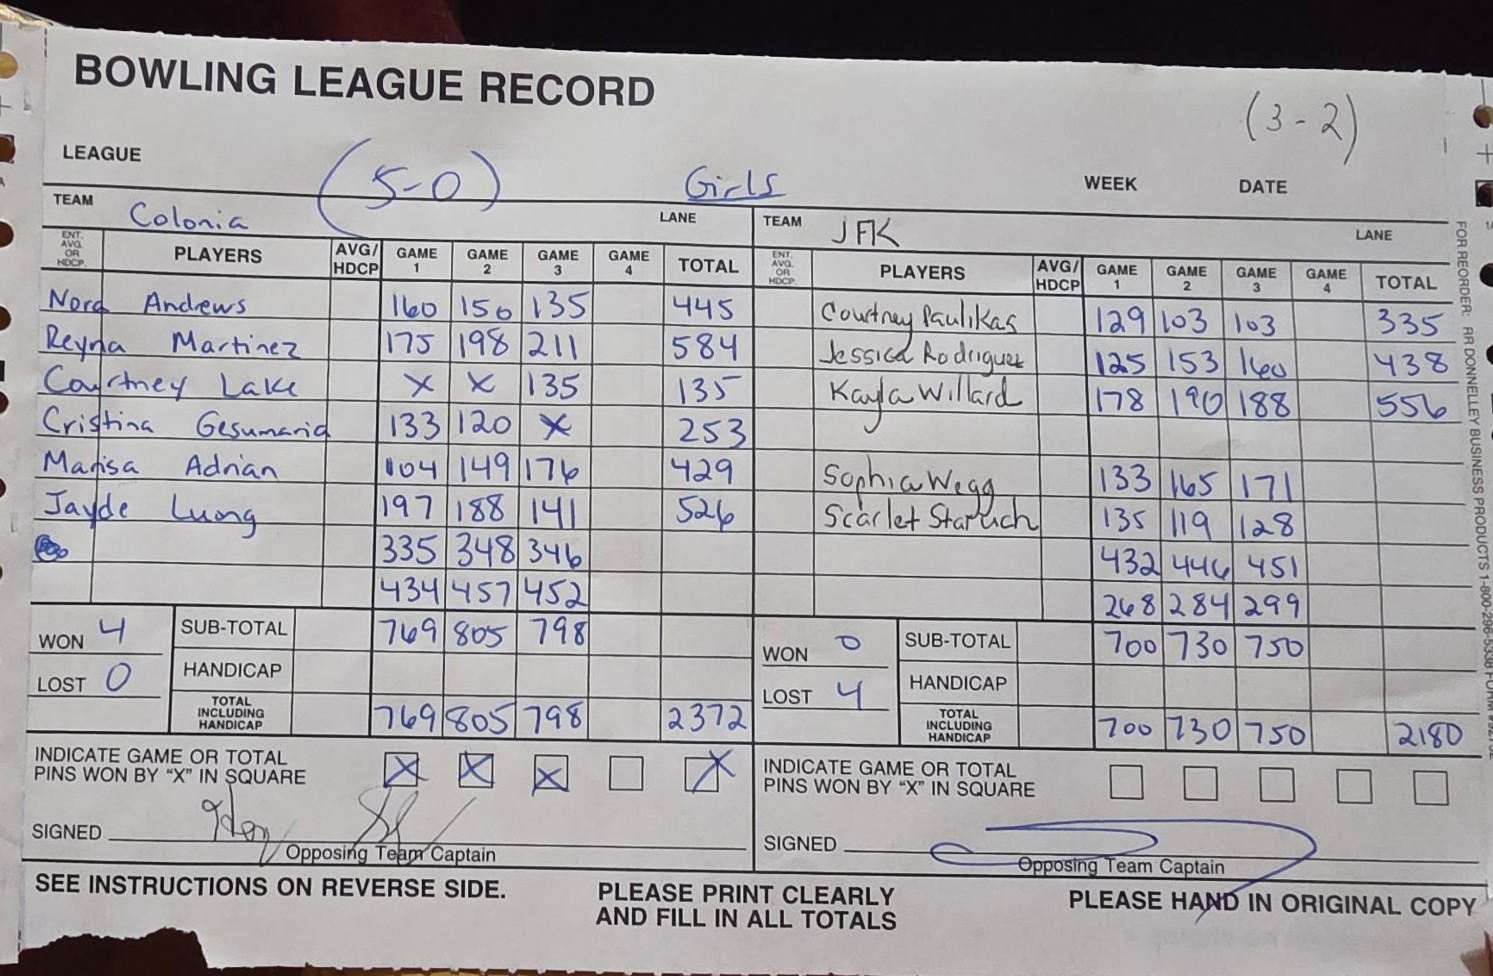 BOWLING LEAGUE RECORD
(3-2)
LEAGUE (5-0) Girls WEEK DATE
TEAM Colonia LANE TEAM JFK LANE
ENT. AVG. OR HDCP. PLAYERS AVG/HDCP GAME 1 GAME 2 GAME 3 GAME 4 TOTAL ENT. AVG. OR HDCP. PLAYERS AVG/HDCP GAME 1 GAME 2 GAME 3 GAME 4 TOTAL
Nora Andrews 160 150 135 445 Courtney Paulikas 129 103 103 335
Reyna Martinez 175 198 211 584 Jessica Rodriguez 125 153 160 438
Courtney Lake X X 135 135 Kayla Willard 178 190 188 556
Cristina Gesumaria 133 120 X 253
Marisa Adrian 104 149 176 429 Sophia Wegg 133 165 171
Jayde Luong 197 188 141 526 Scarlet Staruch 135 119 128
335 348 346 432 446 451
434 457 452 268 284 299
WON 4 SUB-TOTAL 769 805 798 WON 0 SUB-TOTAL 700 730 750
LOST 0 HANDICAP LOST 4 HANDICAP
TOTAL INCLUDING HANDICAP 769 805 798 2372 TOTAL INCLUDING HANDICAP 700 730 750 2180
INDICATE GAME OR TOTAL X X X X INDICATE GAME OR TOTAL
PINS WON BY "X" IN SQUARE PINS WON BY "X" IN SQUARE
SIGNED SIGNED
Opposing Team Captain Opposing Team Captain
SEE INSTRUCTIONS ON REVERSE SIDE. PLEASE PRINT CLEARLY PLEASE HAND IN ORIGINAL COPY
AND FILL IN ALL TOTALS
FOR REORDER: RR DONNELLEY BUSINESS PRODUCTS 1-800-296-5338